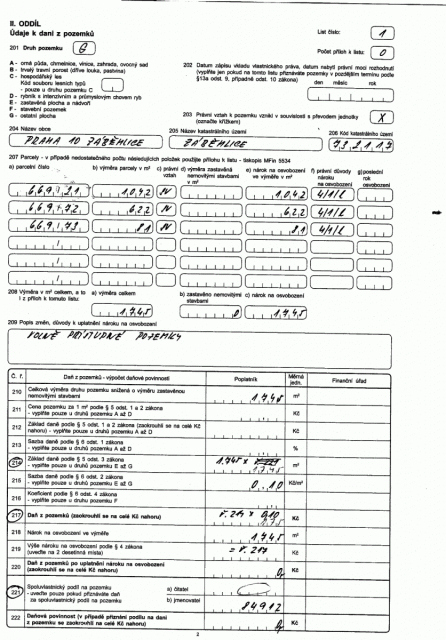 II. ODDÍL
Údaje k dani z pozemků
List číslo: 1
201 Druh pozemku G
Počet příloh k listu: 0
A - orná půda, chmelnice, vinice, zahrada, ovocný sad
B - trvalý travní porost (dříve louka, pastvina)
C - hospodářský les
Kód souboru lesních typů
- pouze u druhu pozemku C
D - rybník s intenzivním a průmyslovým chovem ryb
E - zastavěná plocha a nádvoří
F - stavební pozemek
G - ostatní plocha
202 Datum zápisu vkladu vlastnického práva, datum nabytí právní moci rozhodnutí
(vyplňte jen pokud na tomto listu přiznáváte pozemky v pozdějším termínu podle
§13a odst. 9, případně odst. 10 zákona)
den měsíc rok
203 Právní vztah k pozemku vznikl v souvislosti s převodem jednotky X
(označte křížkem)
204 Název obce
PRAHA 10 ZÁBĚHLICE
205 Název katastrálního území
ZÁBĚHLICE
206 Kód katastrálního území
732117
207 Parcely - v případě nedostatečného počtu následujících položek použijte přílohu k listu - tiskopis MFin 5534
a) parcelní číslo b) výměra parcely v m² c) právní vztah d) výměra zastavěná nemovitými stavbami v m² e) nárok na osvobození ve výměře v m² f) právní důvod nároku na osvobození g) poslední rok osvobození
1042 1042 4/1/L
622 622 4/1/L
81 81 4/1/L
208 Výměra v m² celkem, a to i z příloh k tomuto listu:
a) výměra celkem 1745
b) zastavěno nemovitými stavbami 0
c) nárok na osvobození 1745
209 Popis změn, důvody k uplatnění nároku na osvobození
VOLNĚ PŘÍSTUPNÉ POZEMKY
Č. ř. Daň z pozemků - výpočet daňové povinnosti Poplatník Měrná jedn. Finanční úřad
210 Celková výměra druhu pozemku snížená o výměru zastavěnou nemovitými stavbami 1745 m²
211 Cena pozemku za 1 m² podle § 5 odst. 1 a 2 zákona
- vyplňte pouze u druhů pozemku A až D Kč
212 Základ daně podle § 5 odst. 1 a 2 zákona (zaokrouhlí se na celé Kč nahoru) - vyplňte pouze u druhů pozemku A až D Kč
213 Sazba daně podle § 6 odst. 1 zákona
- vyplňte pouze u druhů pozemku A až D %
214 Základ daně podle § 5 odst. 3 zákona
- vyplňte pouze u druhů pozemku E až G 1745 m²
215 Sazba daně podle § 6 odst. 2 zákona
- vyplňte pouze u druhů pozemku E až G 0,10 Kč/m²
216 Koeficient podle § 6 odst. 4 zákona
- vyplňte pouze u druhu pozemku F
217 Daň z pozemků (zaokrouhlí se na celé Kč nahoru) Kč
218 Nárok na osvobození ve výměře 1745 m²
219 Výše nároku na osvobození podle § 4 zákona
(uveďte na 2 desetinná místa) Kč
220 Daň z pozemků po uplatnění nároku na osvobození
(zaokrouhlí se na celé Kč nahoru) 0 Kč
221 Spoluvlastnický podíl na pozemku
- uveďte pouze pokud přiznáváte daň
za spoluvlastnický podíl na pozemku
a) čitatel
b) jmenovatel 84912
222 Daňová povinnost (v případě přiznání podílu na dani
z pozemku se zaokrouhlí na celé Kč nahoru) 0 Kč
2